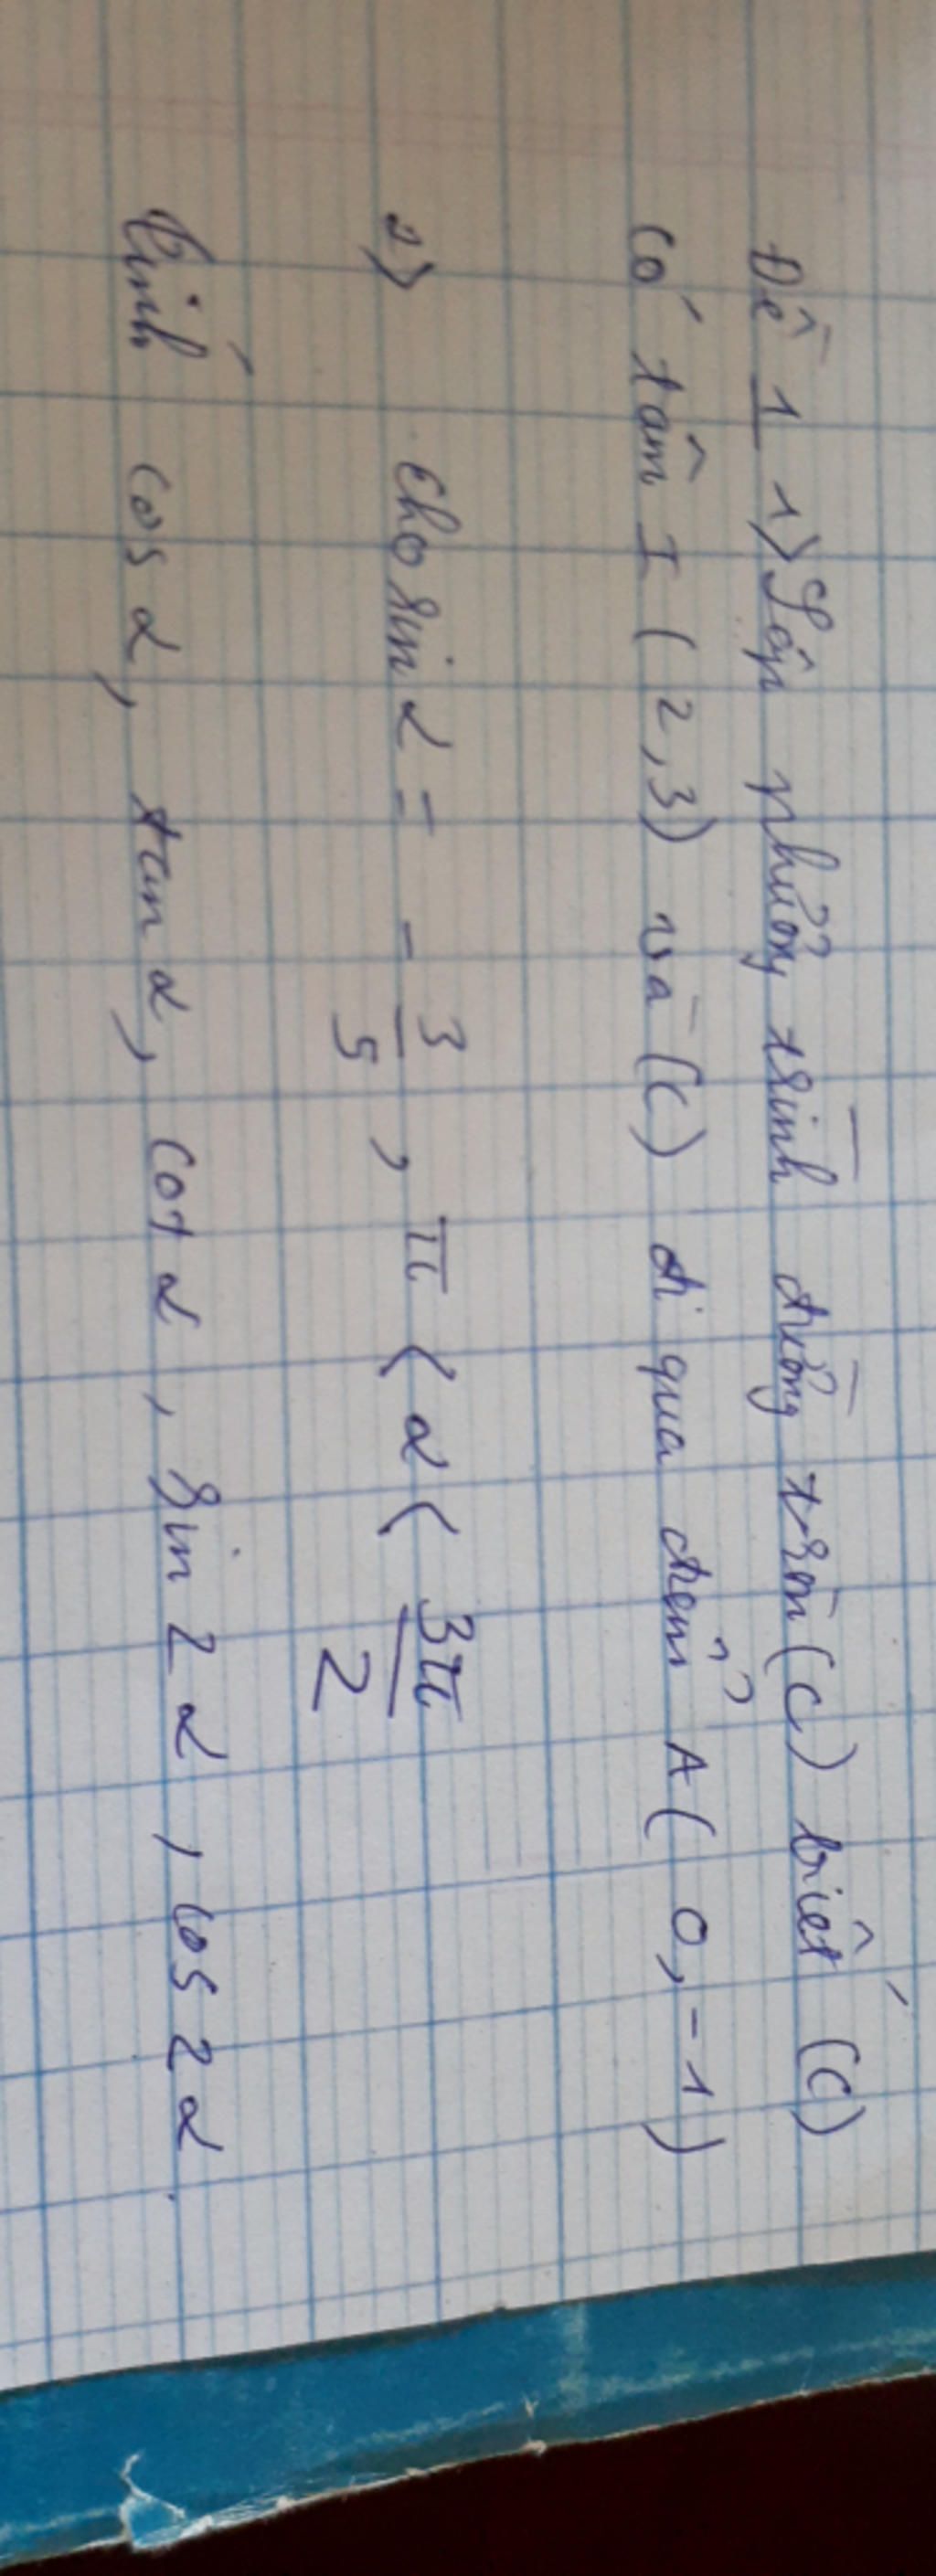 Đề 1 1) Lập phương trình đường tròn (C) biết (C)
có tâm I (2,3) và (C) đi qua điểm A(0,-1)
2) Cho sin α = - 3/5 , π < α < 3π/2
Tính cos α, tan α, cot α, sin 2α, cos 2α.